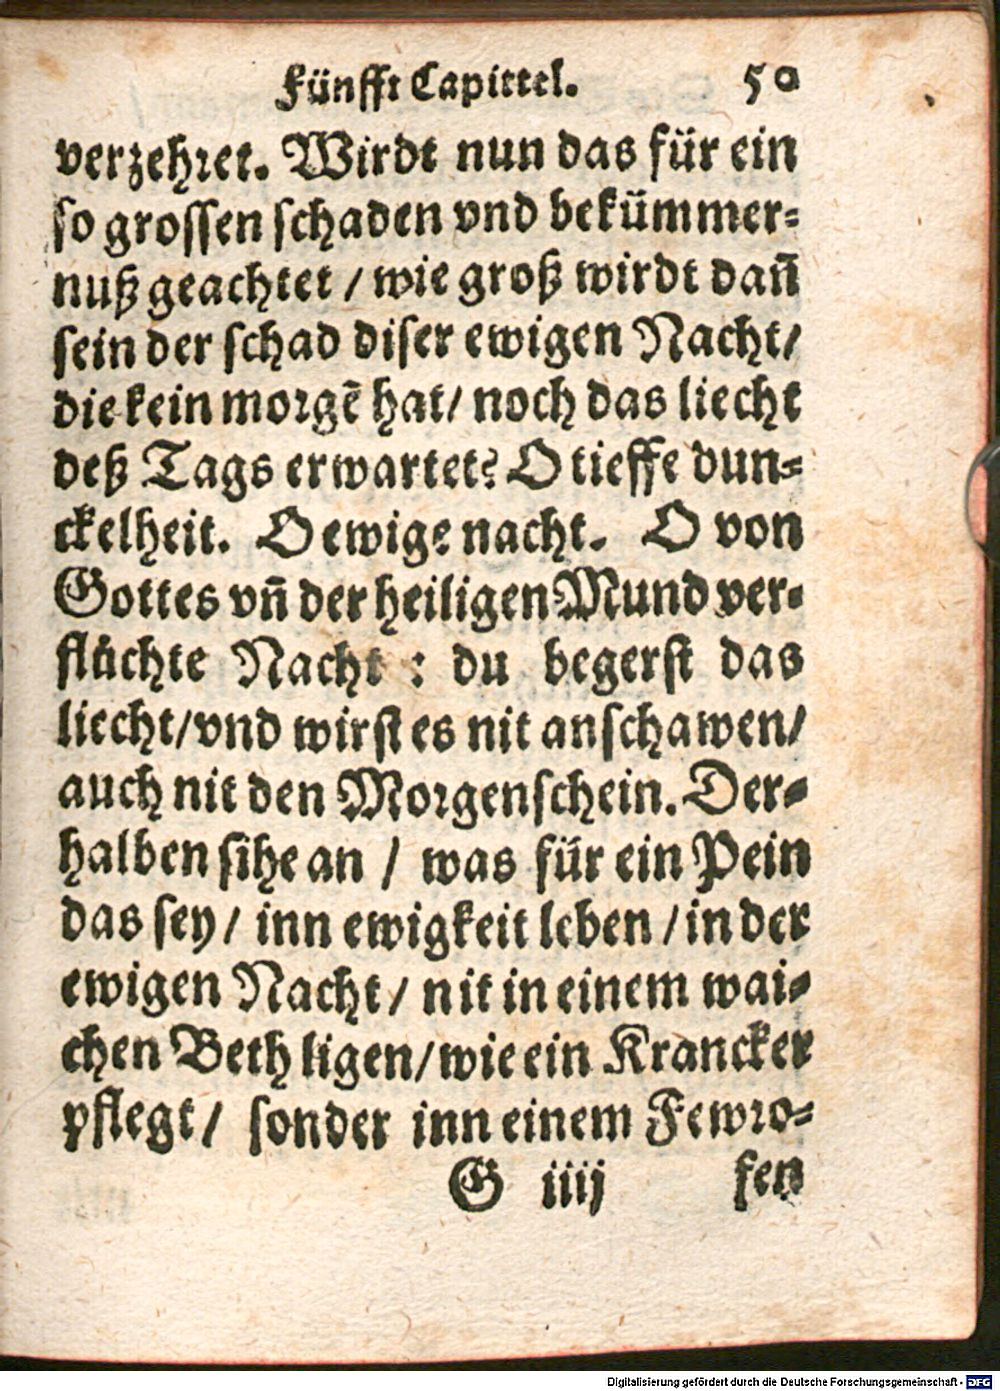 Fünfft Capittel. 50
verzehret. Wirdt nun das für ein
so grossen schaden vnd bekümmer-
nuß geachtet / wie groß wirdt dañ
sein der schad diser ewigen Nacht/
die kein morgē hat/ noch das liecht
deß Tags erwartet? O tieffe dun-
ckelheit. O ewige nacht. O von
Gottes vñ der heiligen Mund ver-
flůchte Nacht : du begerst das
liecht/vnd wirst es nit anschawen/
auch nit den Morgenschein. Der-
halben sihe an / was für ein Pein
das sey/ inn ewigkeit leben /in der
ewigen Nacht/ nit in einem wai-
chen Beth ligen/wie ein Krancker
pflegt/ sonder inn einem Fewro-
G iiij fen
Digitalisierung gefördert durch die Deutsche Forschungsgemeinschaft - DFG